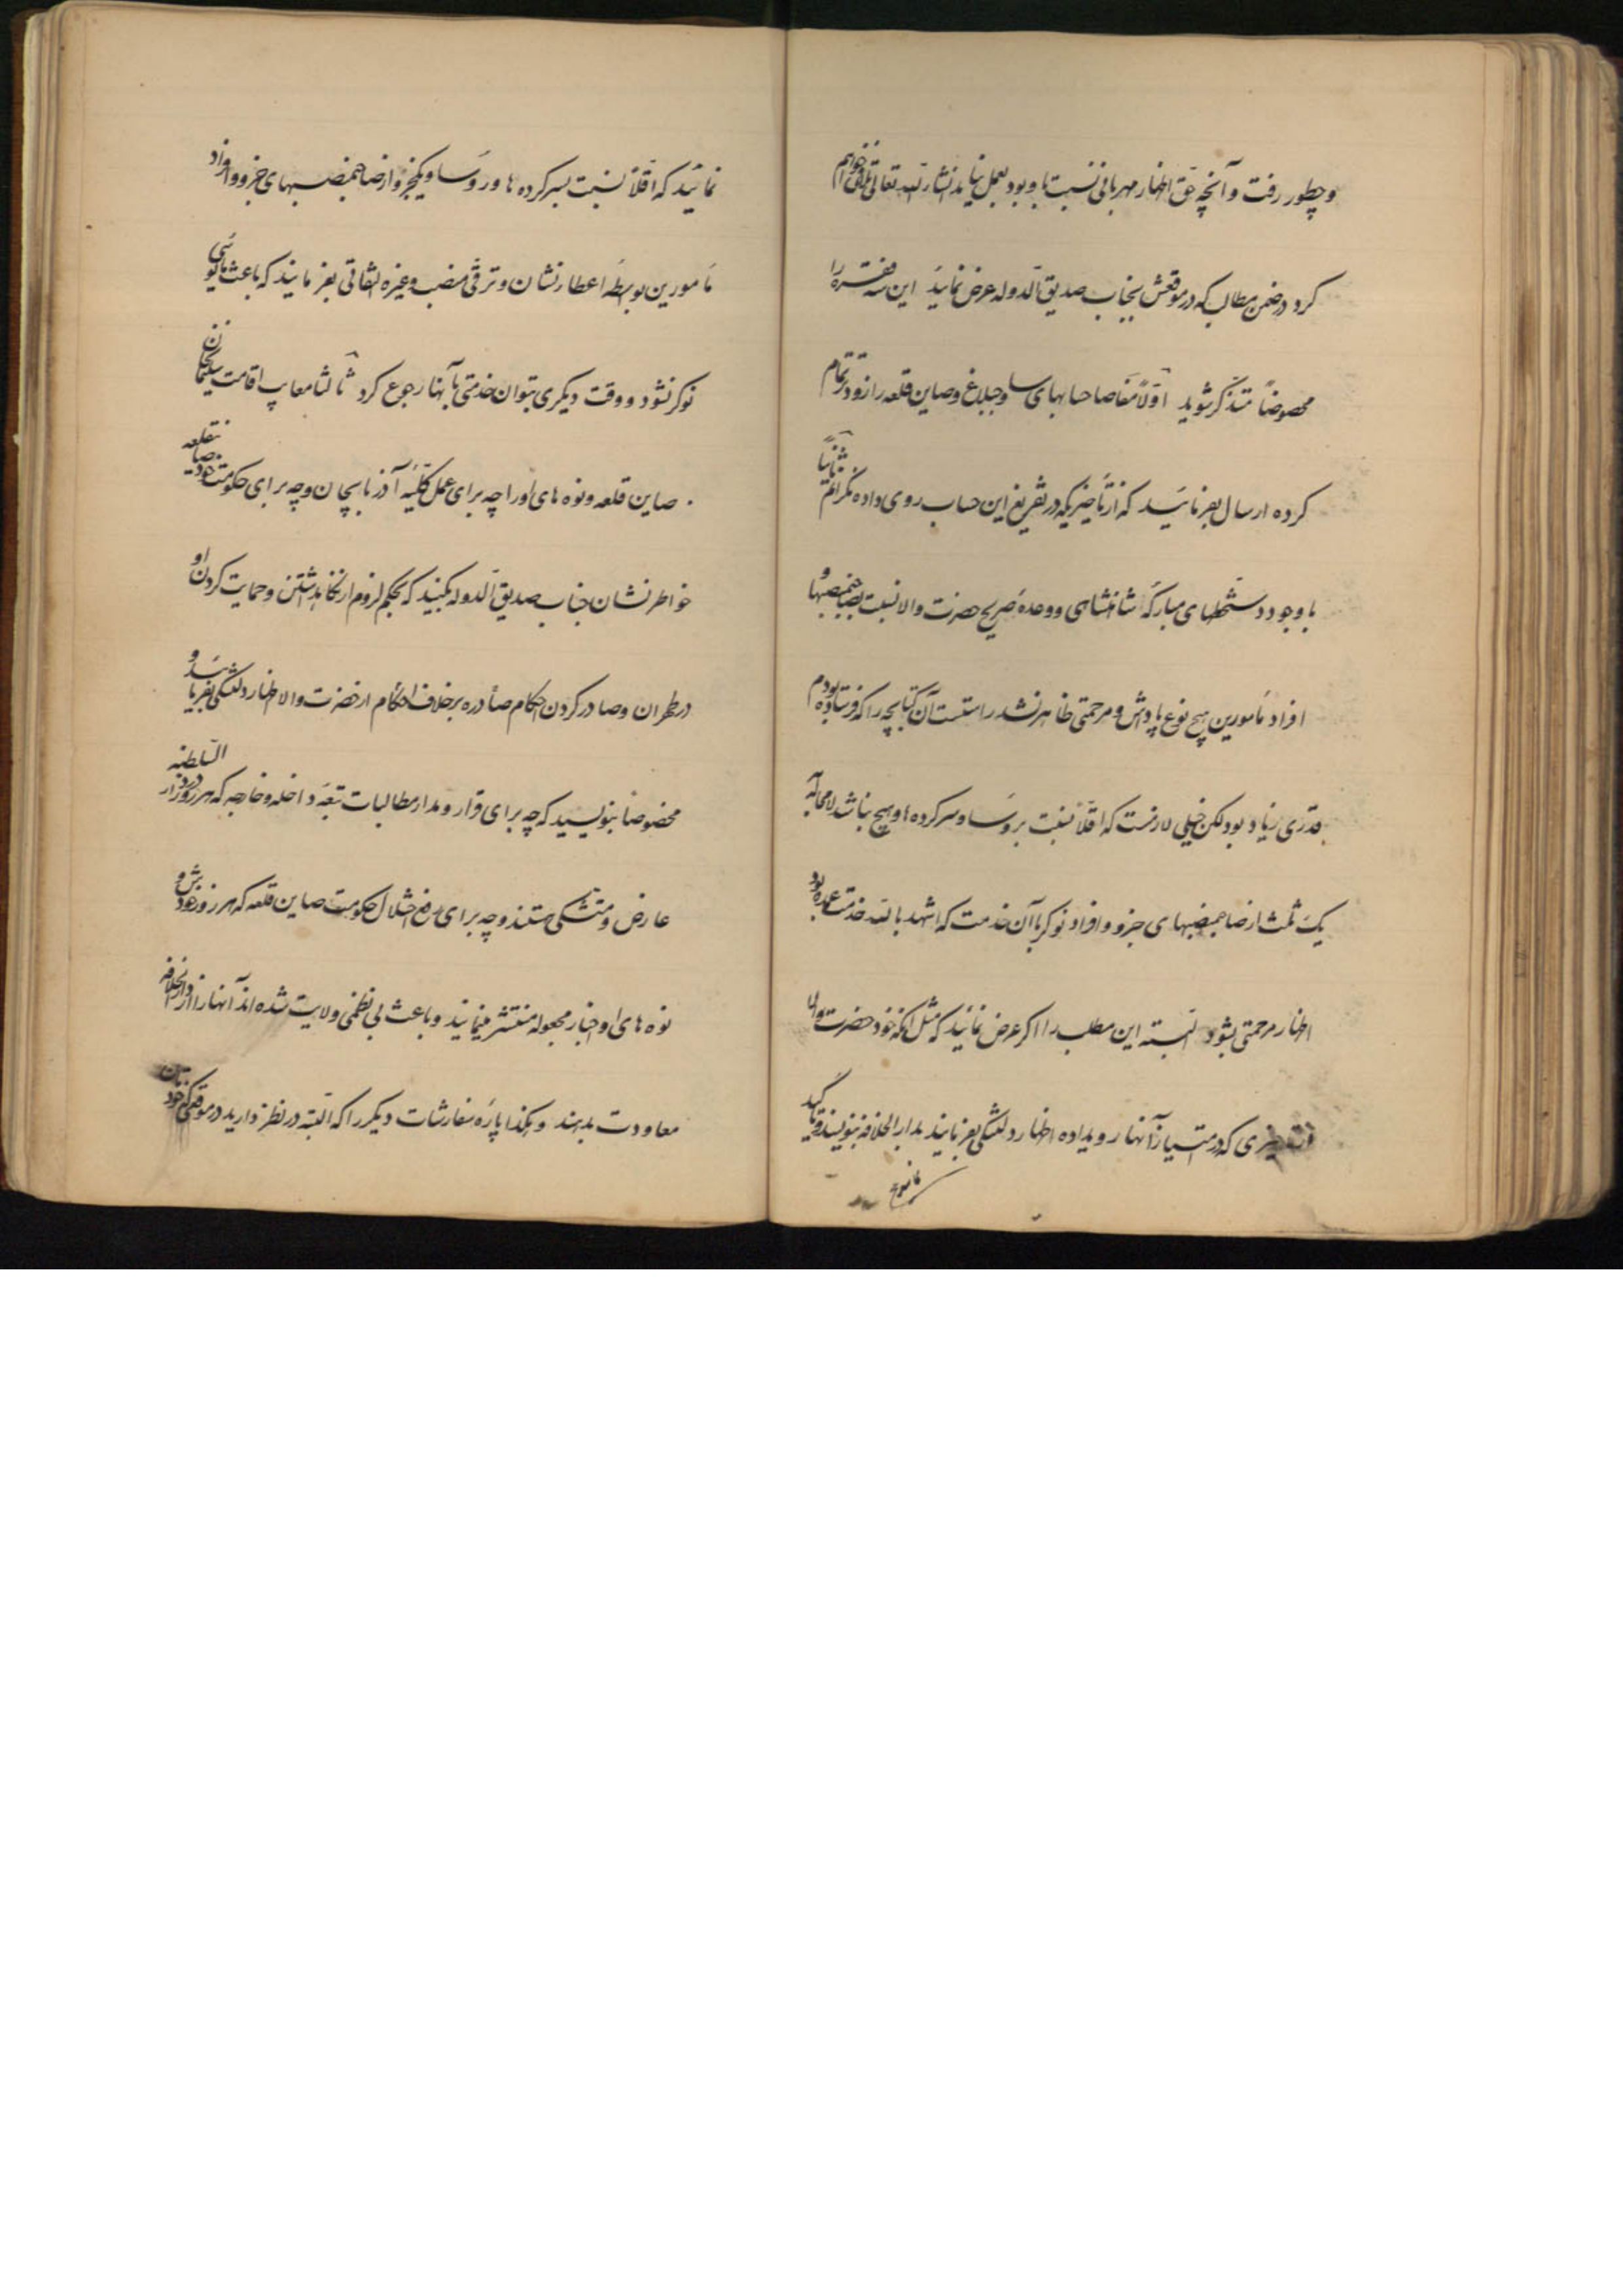 و چطور رفت و آنچه حق اظهار مهربانی نسبت باو بود بعمل نیامد انشاءالله تعالی تلافی خواهم
کرد در ضمن مطالب که در موقعش بجناب صدیق الدوله عرض نمائید این سه فقره را
مخصوصاً متذکر شوید اولاً مفاصا حسابهای ساوجبلاغ و صاین قلعه را زودتر تمام
کرده ارسال بفرمائید که از تأخیریکه در تفریغ این حساب روی داده نگرانم ثانیاً
با وجود دستخطهای مبارکه شاهنشاهی و وعده صریح حضرت والا نسبت بصاحبمنصبها و
افراد مأمورین هیچ نوع پاداش و مرحمتی ظاهر نشد راستست آن کتابچه را که فرستاده بودم
قدری زیاد بود لکن خیلی لازمست که اقلاً نسبت بروسا و سرکرده ها و هیچ نباشد لامحاله
یک ثلث از صاحبمنصبهای جزو و افراد نوکر با آن خدمت که اشهد بالله خدمت عمده بود
اظهار مرحمتی بشود البته این مطلب را اگر عرض نمائید که مثل آنکه خود حضرت والا
که در امتیاز آنها رویداده اظهار دلتنگی بفرمایند بدارالخلافه بنویسند و تأکید
نمائید که اقلاً نسبت بسرکرده ها و روسا و یکجزو از صاحبمنصبهای جزو و افراد
مأمورین بواسطه اعطاء نشان و ترقی منصب و غیره التفاتی بفرمایند که باعث مأیوسی
نوکر نشود و وقت دیگری بتوان خدمتی بآنها رجوع کرد ثالثا معایب اقامت سلیمانخان
صاین قلعه و نوه های او را چه برای عمل کلیه آذربایجان و چه برای حکومت خود صاینقلعه
خواطرنشان جناب صدیق الدوله بکنید که بحکم لزوم از نگاهداشتن و حمایت کردن او
در طهران و صادر کردن احکام صادره برخلاف احکام از حضرت والا اظهار دلتنگی بفرمایند و
مخصوصاً بنویسید که چه برای قرار و مدار مطالبات تبعه داخله و خارجه که هر روز در دارالسلطنه
عارض و متشکی هستند و چه برای رفع اختلال حکومت صاین قلعه که هر روز خودش و
نوه های او اخبار مجعوله منتشر مینمایند و باعث بی نظمی ولایت شده اند آنها را از دارالخلافه
معاودت بدهند و هکذا پاره سفارشات دیگر را که البته در نظر دارید در موقعی که خودتان